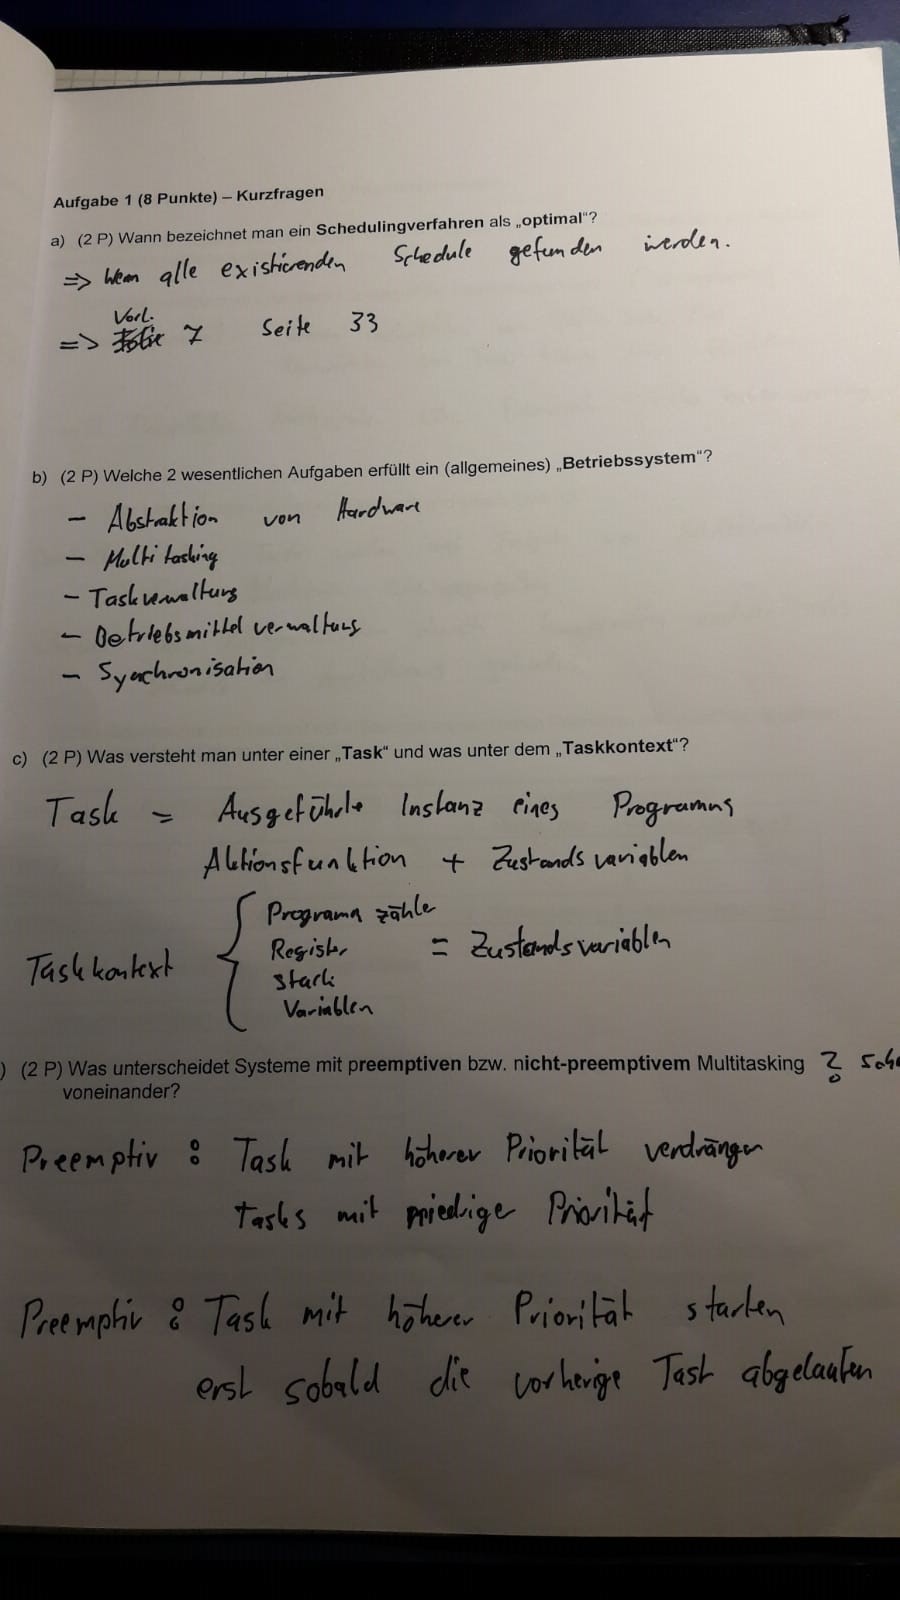 Aufgabe 1 (8 Punkte) – Kurzfragen
a) (2 P) Wann bezeichnet man ein Schedulingverfahren als „optimal“?
=> Wenn alle existierenden Schedule gefunden werden.
Vorl.
=> Folie 7 Seite 33
b) (2 P) Welche 2 wesentlichen Aufgaben erfüllt ein (allgemeines) „Betriebssystem“?
– Abstraktion von Hardware
– Multitasking
– Taskverwaltung
– Betriebsmittelverwaltung
– Synchronisation
c) (2 P) Was versteht man unter einer „Task“ und was unter dem „Taskkontext“?
Task = Ausgeführte Instanz eines Programms
Aktionsfunktion + Zustandsvariablen
Programm zähler
Register = Zustandsvariablen
Taskkontext
Stack
Variablen
) (2 P) Was unterscheidet Systeme mit preemptiven bzw. nicht-preemptivem Multitasking ?
voneinander?
Preemptiv : Task mit höherer Priorität verdrängen
Tasks mit niedrige Priorität
Preemptiv : Task mit höherer Priorität starten
erst sobald die vorherige Task abgelaufen